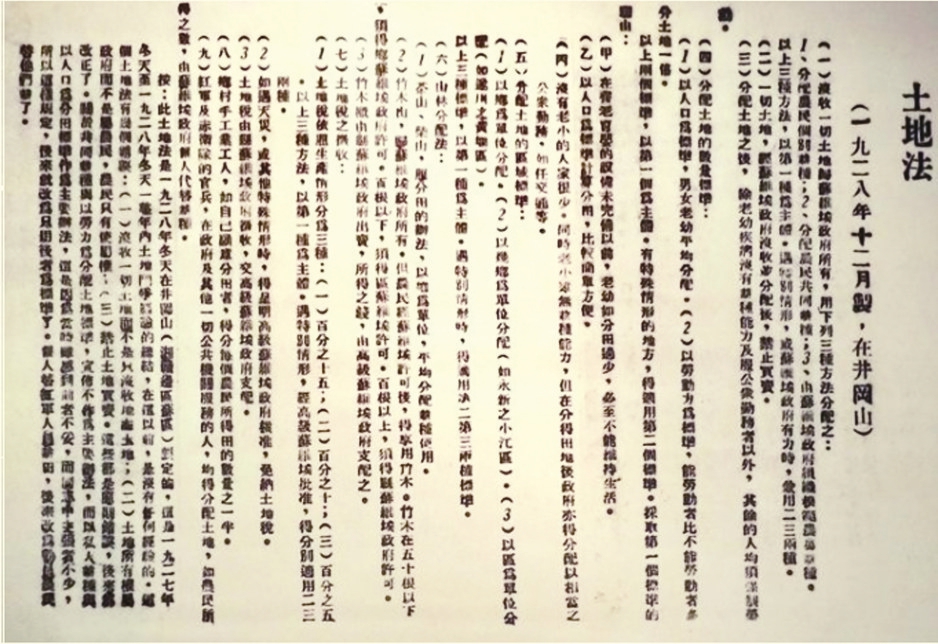 土地法
(一九二八年十二月製,在井岡山)
(一)沒收一切土地歸蘇維埃政府所有,用下列三種方法分配之:
1、分配農民個別耕種;2、分配農民共同耕種;3、由蘇維埃政府組織模範農場耕種。
以上三種方法,以第一種爲主體。遇特別情形,或蘇維埃政府有力時,兼用二三兩種。
(二)一切土地,經蘇維埃政府沒收並分配後,禁止買賣。
(三)分配土地之後,除老幼疾病沒有耕種能力及服公衆勤務者以外,其餘的人均須強制勞
動。
(四)分配土地的數量標準:
(1)以人口爲標準,男女老幼平均分配。(2)以勞動力爲標準,能勞動者比不能勞動者多
分土地一倍。
以上兩個標準,以第一個爲主體。有特殊情形的地方,得適用第二個標準。採取第一個標準的
理由:
(甲)在養老育嬰的設備未完備以前,老幼如分田過少,必至不能維持生活。
(乙)以人口爲標準計算分田,比較簡單方便。
(丙)沒有老小的人家很少。同時老小雖無耕種能力,但在分得田地後政府亦得分配以相當之
公衆勤務,如任交通等。
(五)分配土地的區域標準:
(1)以鄉爲單位分配。(2)以幾鄉爲單位分配(如永新之小江區)。(3)以區爲單位分
配(如遂川之黃坳區)。
以上三種標準,以第一種爲主體。遇特別情形時,得適用第二第三兩種標準。
(六)山林分配法:
(1)茶山,柴山,照分田的辦法,以鄉爲單位,平均分配耕種使用。
(2)竹木山,歸蘇維埃政府所有。但農民經蘇維埃許可後,得享用竹木。竹木在五十根以下
,須得鄉蘇維埃政府許可。百根以下,須得區蘇維埃許可。百根以上,須得縣蘇維埃政府許可。
(3)竹木概由縣蘇維埃政府出賣,所得之錢,由高級蘇維埃政府支配之。
(七)土地稅之徵收:
(1)土地稅依照生產情形分爲三種:(一)百分之十五;(二)百分之十;(三)百分之五
。以上三種方法,以第一種爲主體。遇特別情形,經高級蘇維埃批准,得分別適用二三
兩種。
(2)如遇天災,或其他特殊情形時,得呈明高級蘇維埃政府核准,免納土地稅。
(3)土地稅由縣蘇維埃政府徵收,交高級蘇維埃政府支配。
(八)鄉村手工業工人,如自己願意分田者,得分每個農民所得田的數量之一半。
(九)紅軍及赤衛隊的官兵,在政府及其他一切公共機關服務的人,均得分配土地,如農民所
得之數,由蘇維埃政府僱人代替耕種。
按:此土地法是一九二八年冬天在井岡山(湘贛邊區蘇區)制定的,這是一九二七年
冬天至一九二八年冬天一整年內土地鬥爭經驗的總結,在這以前,是沒有任何經驗的。這
個土地法有幾個錯誤:(一)沒收一切土地而不是只沒收地主土地;(二)土地所有權屬
政府而不是屬農民,農民只有使用權;(三)禁止土地買賣。這些都是原則錯誤,後來都
改正了。關於共同耕種與以勞力爲分配土地標準,宣佈不作爲主要辦法,而以私人耕種與
以人口爲分田標準作爲主要辦法,這是因爲當時雖感到前者不妥,而同志中主張者不少,
所以這樣規定,後來就改爲只用後者爲標準了。僱人替紅軍人員耕田,後來改爲動員農民
替他們耕了。